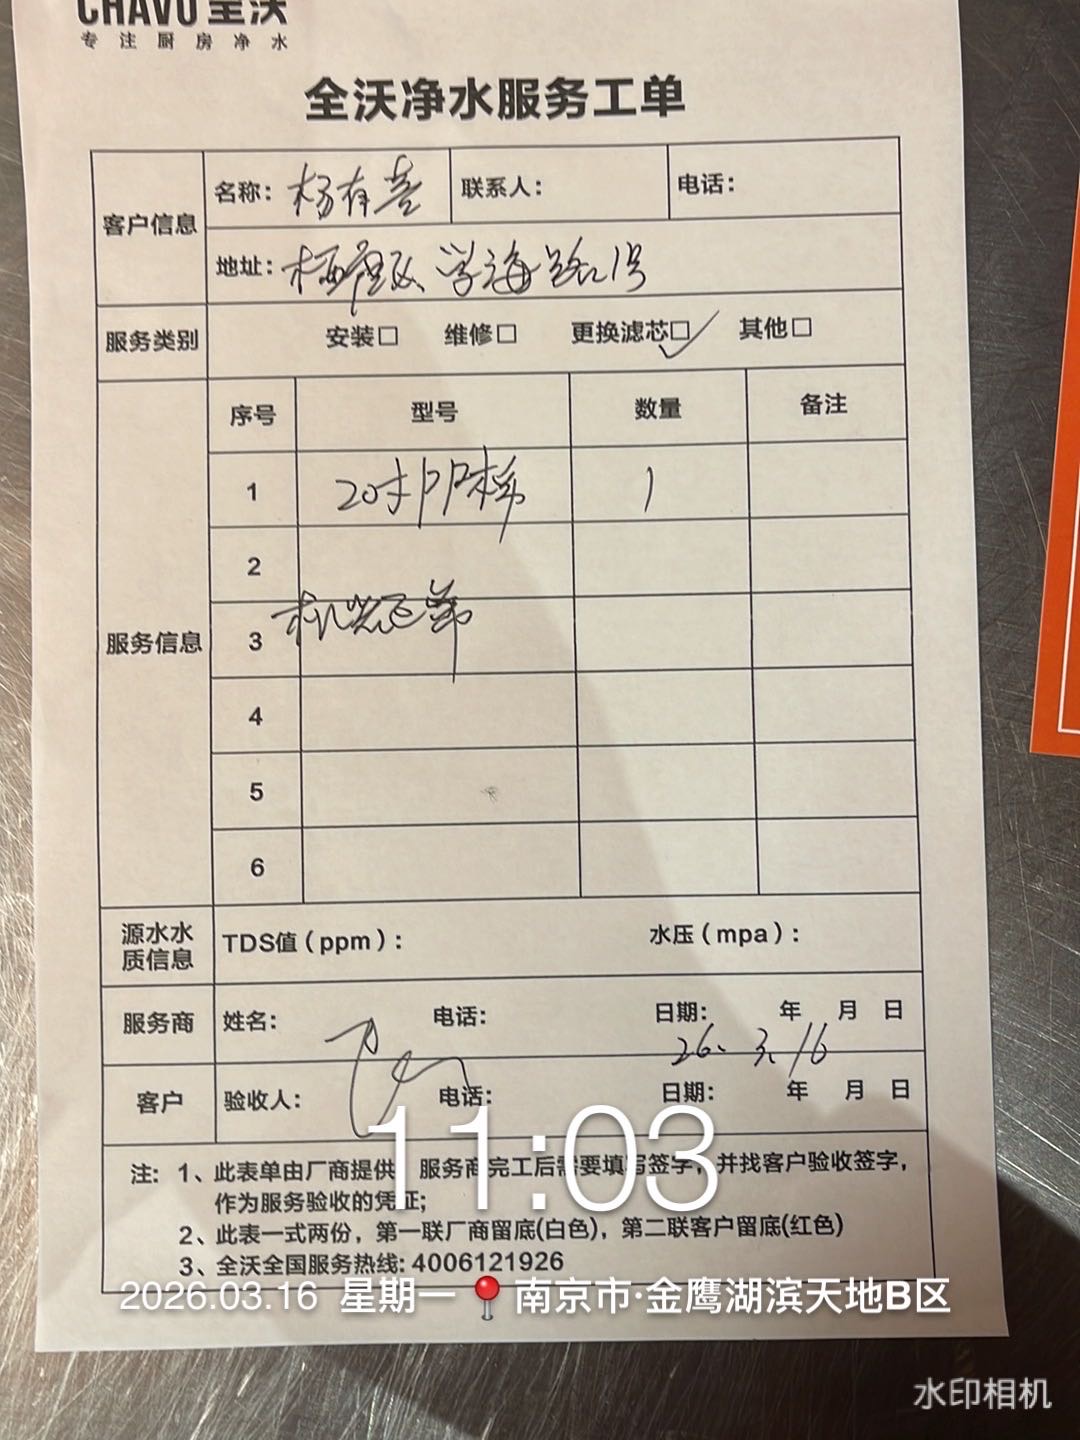 CHAVO 全沃
专注厨房净水
全沃净水服务工单
客户信息 名称： 杨有喜 联系人： 电话：
地址： 栖霞区 学海路1号
服务类别 安装□ 维修□ 更换滤芯□✓ 其他□
服务信息 序号 型号 数量 备注
1 20寸PP棉 1
2
3
4
5
6
源水水质信息 TDS值（ppm）： 水压（mpa）：
服务商 姓名： 电话： 日期： 年 月 日
26. 3. 16
客户 验收人： 电话： 日期： 年 月 日
11:03
注： 1、此表单由厂商提供，服务商完工后需要填写签字，并找客户验收签字，
作为服务验收的凭证；
2、此表一式两份，第一联厂商留底(白色)，第二联客户留底(红色)
3、全沃全国服务热线: 4006121926
2026.03.16 星期一 南京市·金鹰湖滨天地B区
水印相机